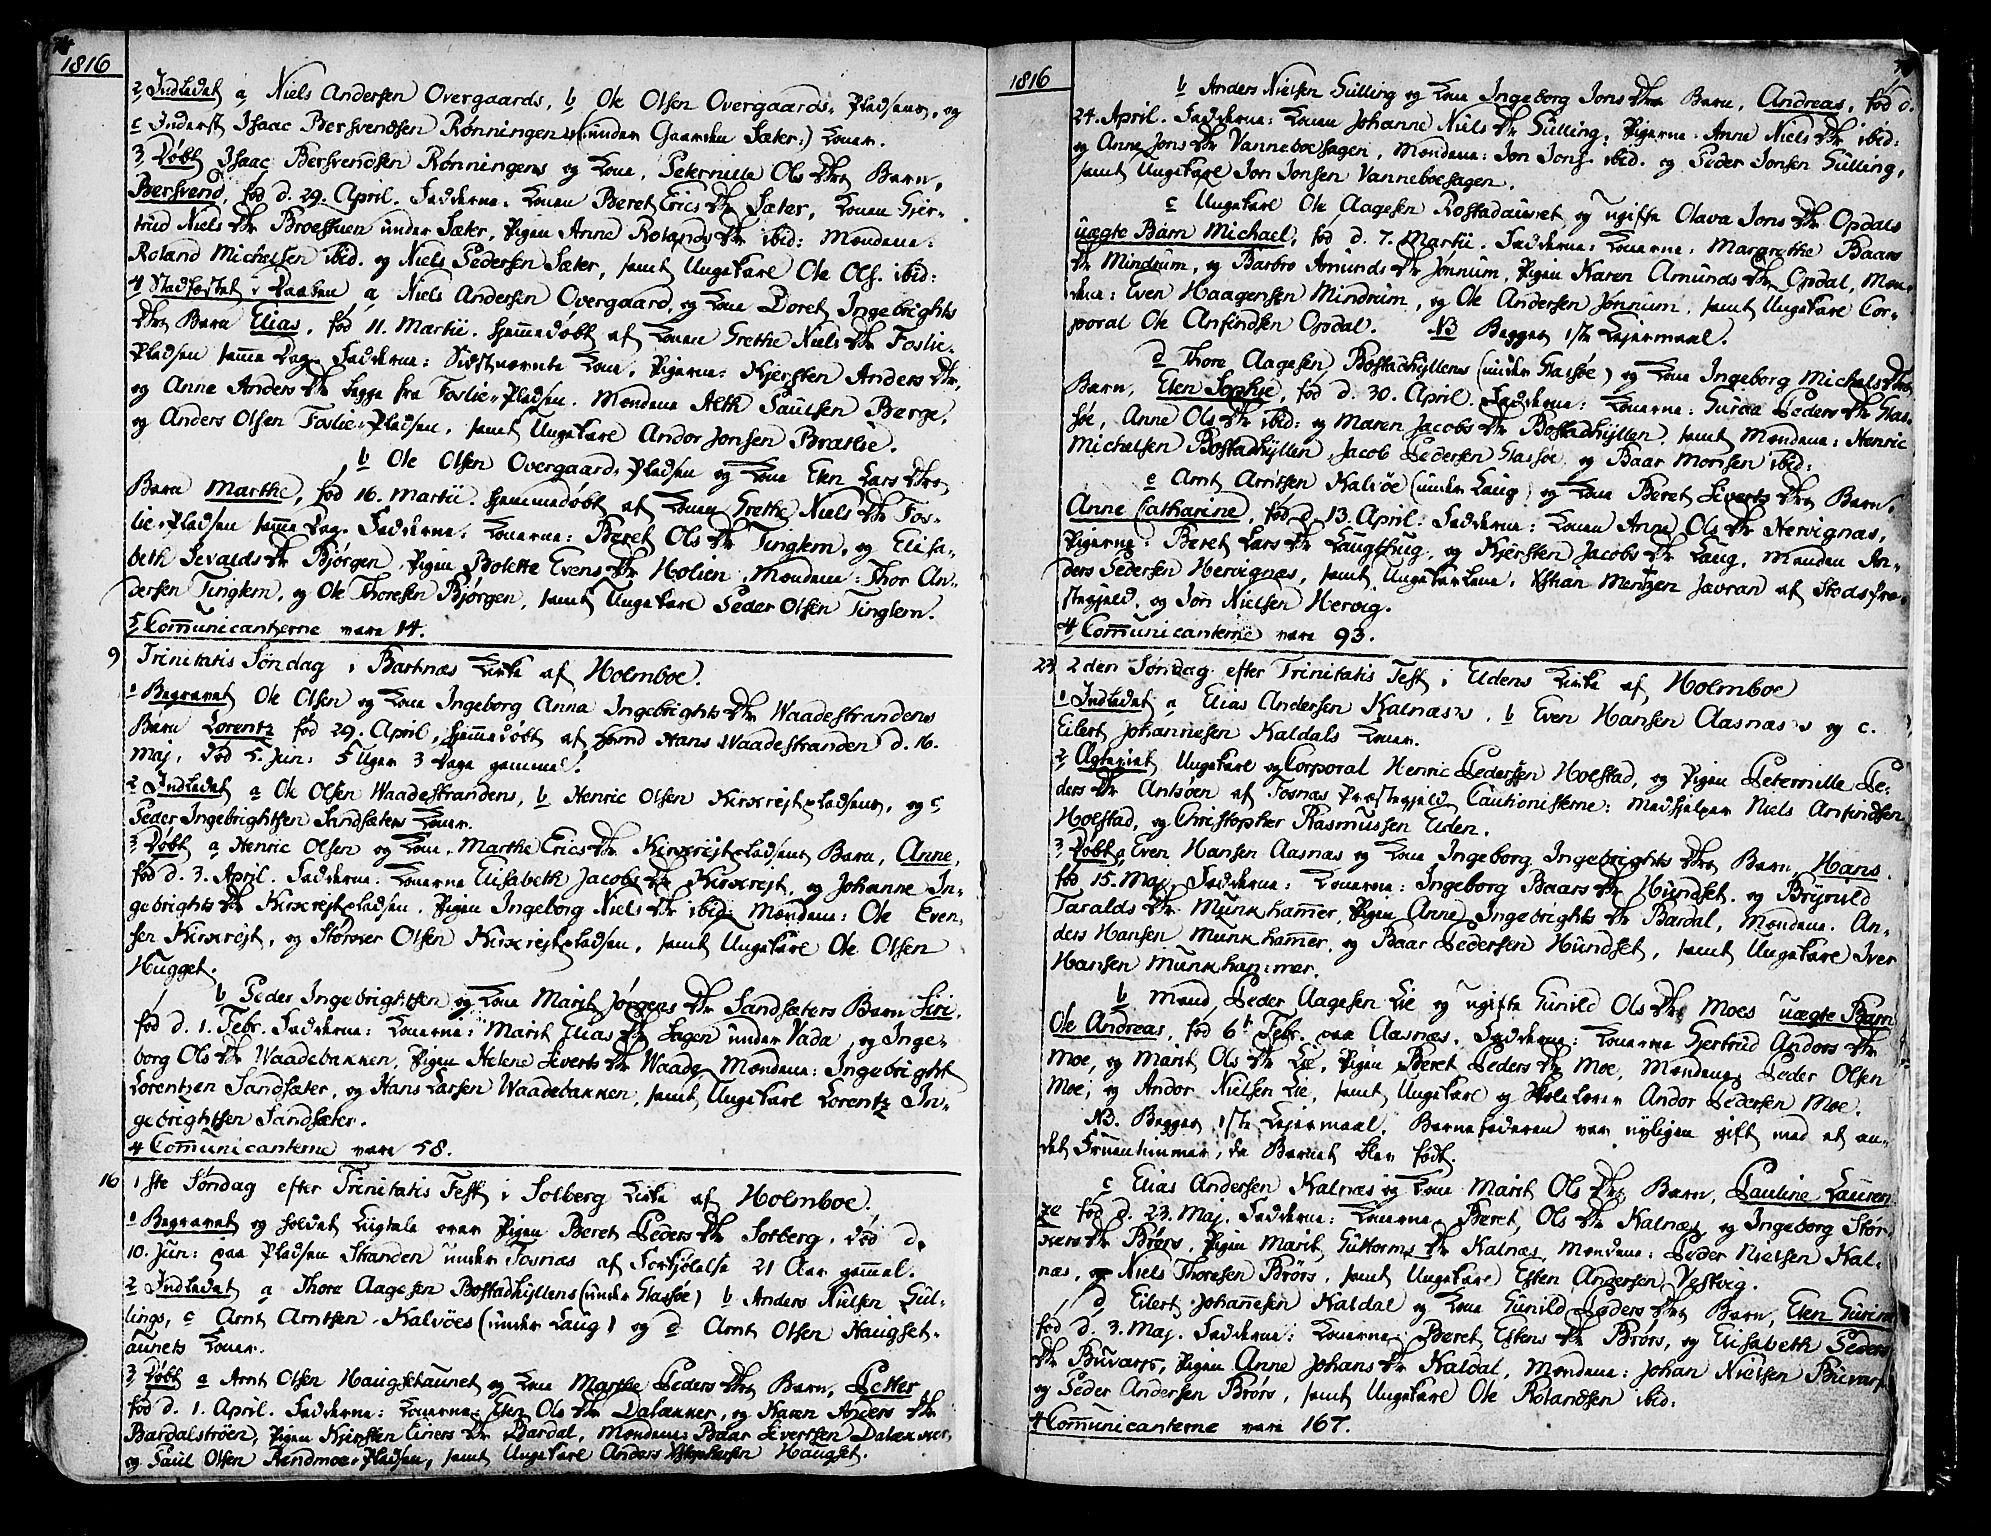 1816
2 Indledet a Niels Andersen Overgaards, b Ole Olsen Overgaards-Pladsens, og
c Inderst Isaac Bersvendsen Rønningens (under Gaarden Sæter:) Koner.
3 Døbt Isaac Bersvendsen Rønningens og Kone, Peternille Ols Dtrs Barn,
Bersvend, fød d. 29. April. Fadderne: Konen Beret Erics Dtr Sæter, Konen Gjer-
trud Niels Dtr Broestuen under Sæter, Pigen Anne Rolands Dtr ibid: Mændene:
Roland Michelsen ibid. og Niels Pedersen Sæter, samt Ungekarl Ole Ols. ibid:
4 Stadfæstet i Daaben a Niels Andersen Overgaard, og Kone Doret Ingebrights
Dtrs Barn Elias, fød 11. Martii. hjemmedøbt af Konen Grethe Niels Dtr Foslie-
Pladsen samme Dag. Fadderne: Sidstnævnte Kone, Pigerne: Kjersten Anders Dtr,
og Anne Anders Dtr begge fra Foslie-Pladsen. Mændene Alth Paulsen Berge,
og Anders Olsen Foslie-Pladsen, samt Ungekarl Andor Jonsen Brætlie.
b Ole Olsen Overgaards-Pladsen og Kone Elen Lars Dtrs
Barn Marthe, fød 16. Martii. hjemmedøbt af Konen Grethe Niels Dtr Fos-
lie-Pladsen samme Dag. Fadderne: Konerne: Beret Ols Dtr Tinglem, og Elisa-
beth Sevalds Dtr Bjørgen, Pigen Bolette Evens Dtr Holien, Mændene: Thor An-
dersen Tinglem, og Ole Thoresen Bjørgen, samt Ungekarl Peder Olsen Tinglem.
5 Communicanterne vare 14.
9 Trinitatis Søndag i Bartnæs Kirke af Holmboe.
1 Begravet Ole Olsen og Kone Ingeborg Anna Ingebrights Dtr Waadestrandens
Barn Lorentz fød 29. April, hjemmedøbt af Hans Waadestranden d. 16.
Maj, død 5. Jun: 5 Uger 3 Dage gammel.
2 Indledet a Ole Olsen Waadestrandens, b Henric Olsen Kirkrejtpladsens, og c
Peder Ingebrightsen Sandsæters Koner.
3 Døbt a Henric Olsen og Kone Marthe Erics Dtr Kirkrejtpladsens Barn, Anne,
fød d. 3. April. Fadderne: Konerne Elisabeth Jacobs Dtr Kirkrejt, og Johanne In-
gebrights Dtr Kirkrejtpladsen, Pigen Ingeborg Niels Dtr ibid: Mændene: Ole Even-
sen Kirkrejt, og Størker Olsen Kirkrejtpladsen, samt Ungekarl Ole Olsen
Hugget.
b Peder Ingebrightsen og Kone Marit Jørgens Dtr Sandsæters Barn Siri,
fød d. 1. Febr. Fadderne: Konerne: Marit Elias Dtr Hagen under Vada, og Inge-
borg Ols Dtr Waadebakken, Pigen Helene Siverts Dtr Waade, Mændene: Ingebright
Lorentzen Sandsæter, og Hans Larsen Waadebakken, samt Ungekarl Lorentz In-
gebrightsen Sandsæter.
4 Communicanterne vare 58.
16 1ste Søndag efter Trinitatis Fest i Solberg Kirke af Holmboe.
1 Begravet og holdet Liigtale over Pigen Beret Peders Dtr Solberg, død d.
10. Jun: paa Pladsen Stranden under Fosnæs af Forkjølelse 21 Aar gammel.
2 Indledet a Thore Aagesen Bostadhyllens (under Glassøe) b Anders Nielsen Gul-
lings, c Arnt Arntsen Kalvöes (under Laug) og d Arnt Olsen Haugset-
aunets Koner.
3 Døbt a Arnt Olsen Haugsetaunet og Kone Marthe Peders Dtrs Barn, Petter,
fød d. 1. April. Fadderne: Konerne: Elen Ols Dtr Dalækker, og Karen Anders Dtr
Bardalstrøen, Pigen Kjersten Einers Dtr Bardal, Mændene: Baar Sivertsen Dalækker,
og Paul Olsen Rendmoe-Pladsen, samt Ungekarl Anders Haugset.
1816
b Anders Nielsen Gulling og Kone Ingeborg Jons Dtrs Barn, Andreas, fød d.
24. April. Fadderne: Konen Johanne Niels Dtr Gulling, Pigerne: Anne Niels Dtr ibid:
og Anne Jons Dtr Vanneboehagen, Mændene: Jon Jons. ibid. og Peder Jonsen Gulling,
samt Ungekarl Jon Jonsen Vanneboehagen.
c Ungekarl Ole Aagesen Rostadaunet, og ugifte Olava Jons Dtr Opdals
uægte Barn Michael, fød d. 7. Martii. Fadderne: Konerne: Margrethe Baars
Dtr Mindrum, og Barbro Amunds Dtr Jønnum, Pigen Karen Amunds Dtr Opdal, Mæn-
dene: Even Haagensen Mindrum, og Ole Andersen Jønnum, samt Ungekarl Cor-
poral Ole Anfindsen Opdal. NB Begges 1ste Lejermaal.
d Thore Aagesen Bostadhyllens (under Glassøe) og Kone Ingeborg Michels Dtrs
Barn, Elen Sophie, fød d. 30. April. Fadderne: Konerne: Guroe Peders Dtr Glas-
søe, Anne Ols Dtr ibid: og Maren Jacobs Dtr Bostadhyllen, samt Mændene: Henric
Michelsen Bostadhyllen, Jacob Pedersen Glassøe og Baar Monsen ibid:
e Arnt Arntsen Kalvöe (under Laug) og Kone Beret Siverts Dtrs Barn,
Anne Catharine, fød d. 13. April: Fadderne: Konen Anne Ols Dtr Hervignæs,
Pigerne: Beret Lars Dtr Laugthug, og Kjersten Jacobs Dtr Laug, Manden An-
ders Pedersen Hervignæs, samt Ungekarlene, Estian Mentzen Javran af Stods Præ-
stegjeld, og Jon Nielsen Hervig.
4 Communicanterne vare 93.
23 2den Søndag efter Trinitatis Fest i Eldens Kirke af Holmboe
1 Indledet a Elias Andersen Kalnæs's, b Even Hansen Aasnæs's og c.
Eilert Johannesen Kaldals Koner.
2 Ægteviet Ungekarl og Corporal Henric Pedersen Hoelstad, og Pigen Peternille Pe-
ders Dtr Antsøen af Fosnæs Præstegjeld Cautionisterne: Medhjelper Niels Anfindsen
Hoelstad, og Christopher Rasmussen Elden.
3 Døbt a Even Hansen Aasnæs og Kone Ingeborg Ingebrights Dtrs Barn, Hans,
fød 15. Maj. Fadderne: Konerne: Ingeborg Baars Dtr Hundset, og Brynild
Taralds Dtr Munkhammer, Pigen Anne Ingebrights Dtr Bardal, Mændene: An-
ders Hansen Munkhammer, og Baar Pedersen Hundset, samt Ungekarl Iver
Hansen Munkhammer.
b Mand Peder Aagesen Lie og ugifte Gunild Ols Dtr Moes uægte Barn
Ole Andreas, fød 6te Febr. paa Aasnæs. Fadderne: Konerne Gjertrud Andors Dtr
Moe, og Marit Ols Dtr Lie, Pigen Beret Peders Dtr Moe, Mændene Peder Olsen
Moe, og Andor Nielsen Lie, samt Ungekarl og Skolelærer Andor Pedersen Moe.
NB. Begges 1ste Lejermaal. Barnefaderen var nyligen gift med et an-
det Fruentimmer, da Barnet blev født.
c Elias Andersen Kalnæs og Kone Marit Ols Dtrs Barn, Pauline Lauren-
ze fød d. 23. Maj. Fadderne: Konerne Beret Ols Dtr Kalnæs og Ingeborg Stør-
kers Dtr Brørs, Pigen Marit Guttorms Dtr Kalnæs, Mændene: Peder Nielsen Kal-
næs, og Niels Thoresen Brørs, samt Ungekarl Esten Andersen Vestvig.
d Eilert Johannesen Kaldal og Kone Gunild Peders Dtrs Barn, Elen Gurina
fød d. 3. Maj. Fadderne: Konerne Beret Estens Dtr Brørs, og Elisabeth Peders
Dtr Buvarp, Pigen Anne Johans Dtr Kaldal, Mændene: Johan Nielsen Buvarp
og Peder Andersen Brørs, samt Ungekarl Ole Rolandsen ibid:
4 Communicanterne vare 167.